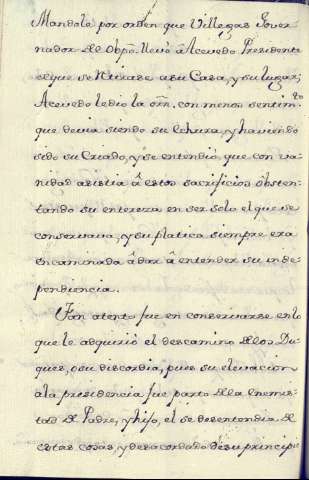 Mandole por orden que Villegas Gover-
nador del Obpō. llevó â Acevedo Presidente
el que se retirase a su Casa, y su lugar;
Acevedo le dio la ôrn̄. con menos sentim.to
que devia siendo su echura, y haviendo
sido su Criado, y se entendió que con va-
nidad asistia â estos sacrificios obsten-
tando su entereza en ser solo el que se
conservava, y su platica siempre era
encaminada â dar â entender su inde-
pendiencia.
Tan atento fue en conservarse en lo
que le adquirió el descamino de los Du-
ques, o su discordia, pues su elevacion
a la presidencia fue parto de la enemis-
tad de Padre, y hijo, el se desentendia de
estas cosas, y desacordado de su principi-